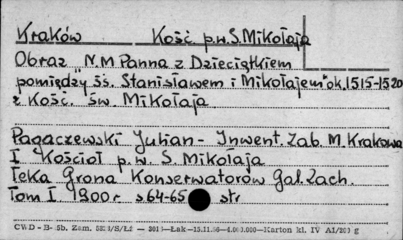 Kraków Kośc p.w. S. Mikołaja
Obraz "N.M Panna z Dzieciątkiem
pomiędzy śś. Stanisławem i Mikołajem" ok. 1515-1520
z Kośc. św. Mikołaja
Pagaczewski Julian - Inwent. Zab. M. Krakowa
I Kościoł p.w. S. Mikołaja
Teka Grona Konserwatorów Gal. Zach.
Tom I 1900 r s 64-65 str
CWD-B- 5b. Zam. Łak 15.11. Karton kl. IV A1/200 g